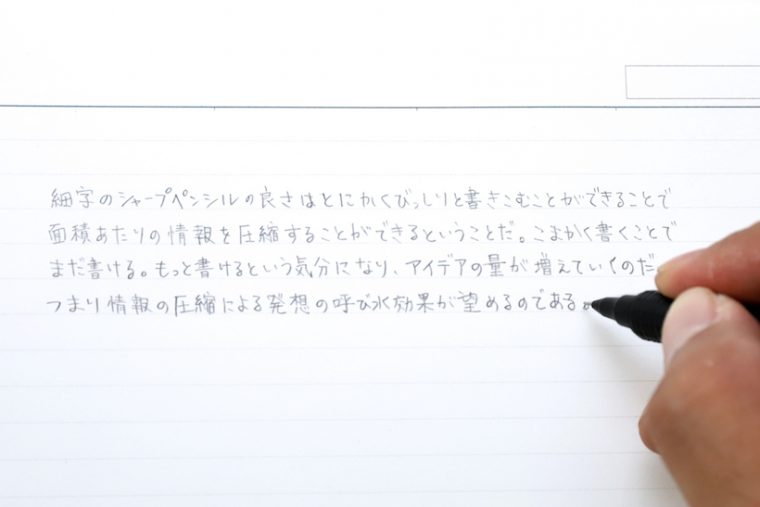 細字のシャープペンシルの良さはとにかくびっしりと書きこむことができることで
面積あたりの情報を圧縮することができるということだ。こまかく書くことで
まだ書ける。もっと書けるという気分になり、アイデアの量が増えていくのだ。
つまり情報の圧縮による発想の呼び水効果が望めるのである。